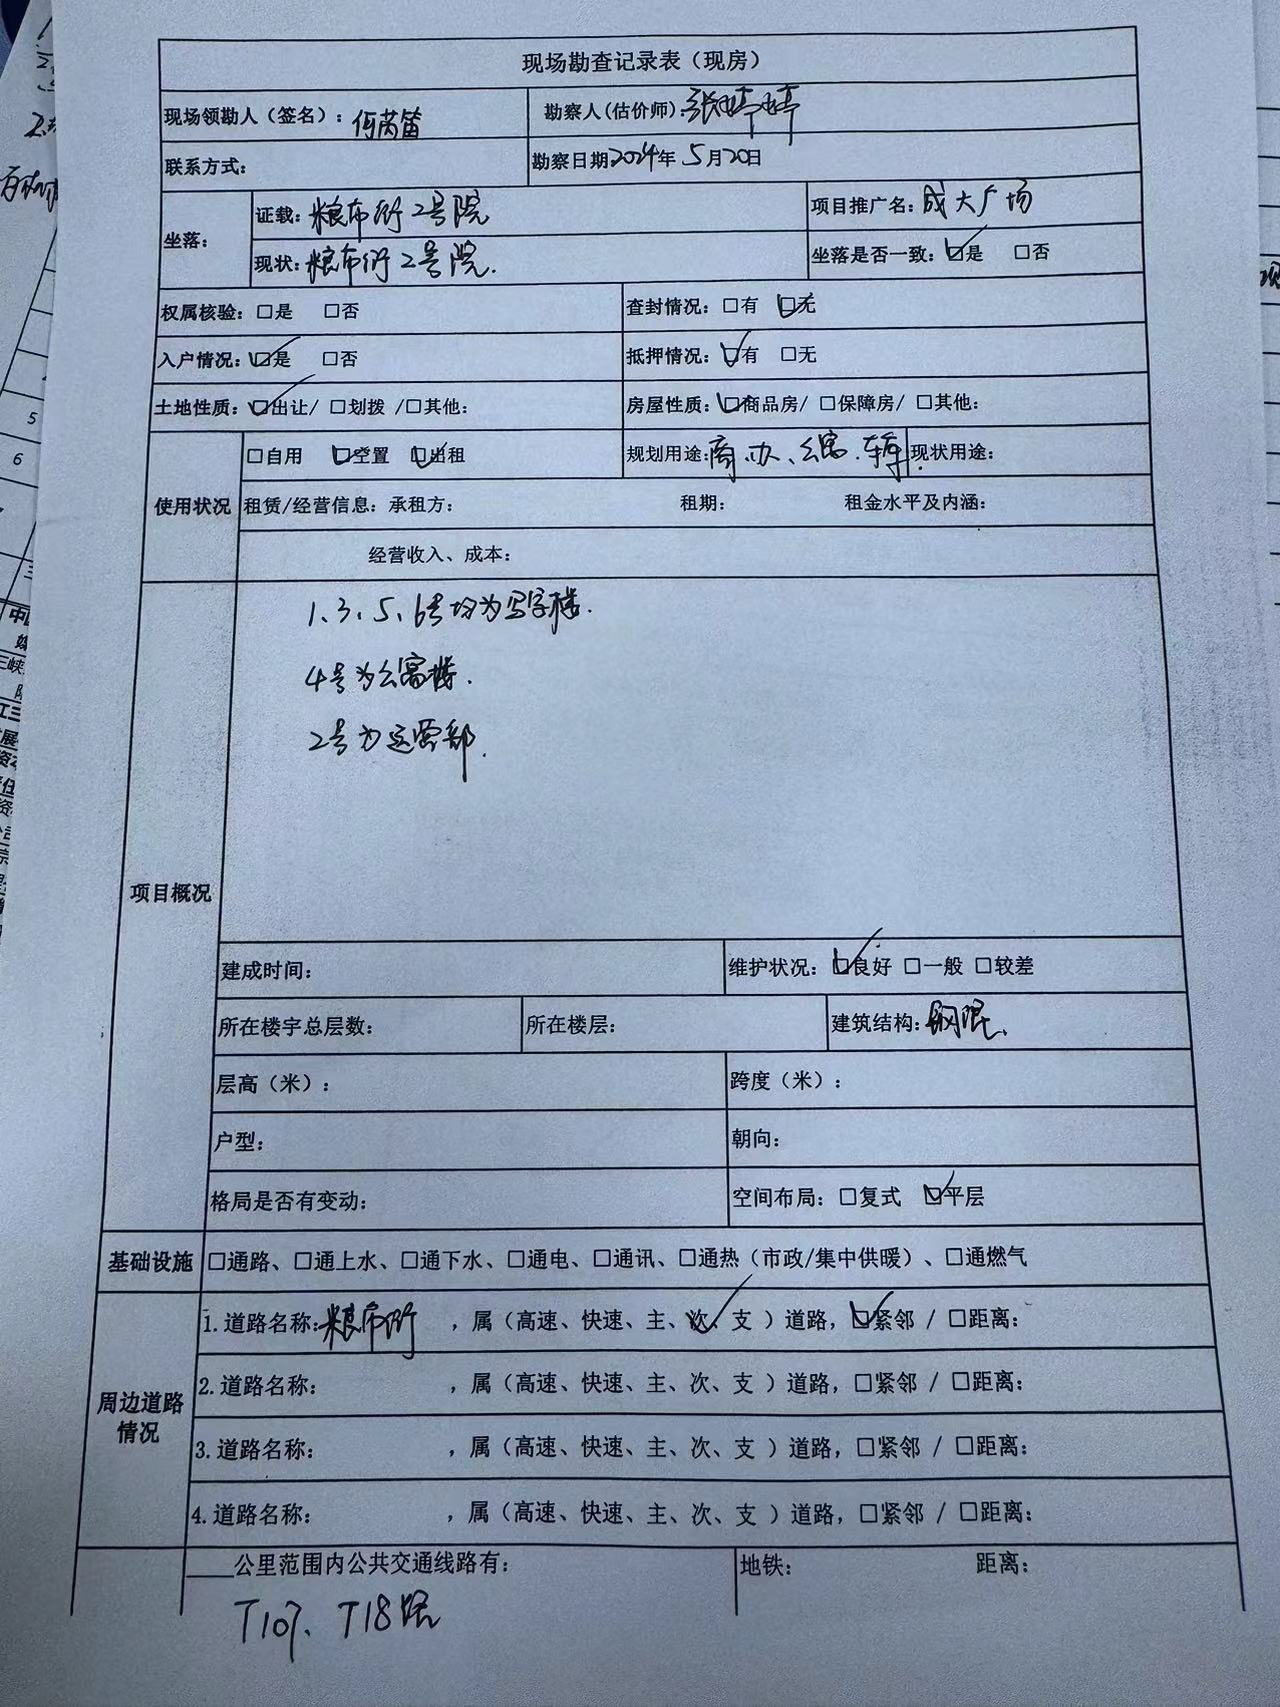 现场勘查记录表（现房）
现场领勘人（签名）：何芮笛
勘察人(估价师):张婷婷
联系方式：
勘察日期2024年5月20日
坐落：
证载：粮市街2号院
项目推广名：成大广场
现状：粮市街2号院.
坐落是否一致：☑是 □否
权属核验：□是 □否
查封情况：□有 ☑无
入户情况：☑是 □否
抵押情况：☑有 □无
土地性质：☑出让/ □划拨 /□其他：
房屋性质：☑商品房/ □保障房/ □其他：
使用状况
□自用 ☑空置 ☑出租
规划用途：商.办、公寓.车库.
现状用途：
租赁/经营信息：承租方： 租期： 租金水平及内涵：
经营收入、成本：
项目概况
1、3、5、6号均为写字楼.
4号为公寓楼.
2号为运营部.
建成时间：
维护状况：☑良好 □一般 □较差
所在楼宇总层数：
所在楼层：
建筑结构：钢混、
层高（米）：
跨度（米）：
户型：
朝向：
格局是否有变动：
空间布局：□复式 ☑平层
基础设施
□通路、□通上水、□通下水、□通电、□通讯、□通热（市政/集中供暖）、□通燃气
周边道路情况
1.道路名称：粮市街 ，属（高速、快速、主、次、支 ）道路，☑紧邻 / □距离：
2.道路名称： ，属（高速、快速、主、次、支 ）道路，□紧邻 / □距离：
3.道路名称： ，属（高速、快速、主、次、支 ）道路，□紧邻 / □距离：
4.道路名称： ，属（高速、快速、主、次、支 ）道路，□紧邻 / □距离：
____公里范围内公共交通线路有：
地铁： 距离：
T107、T18路